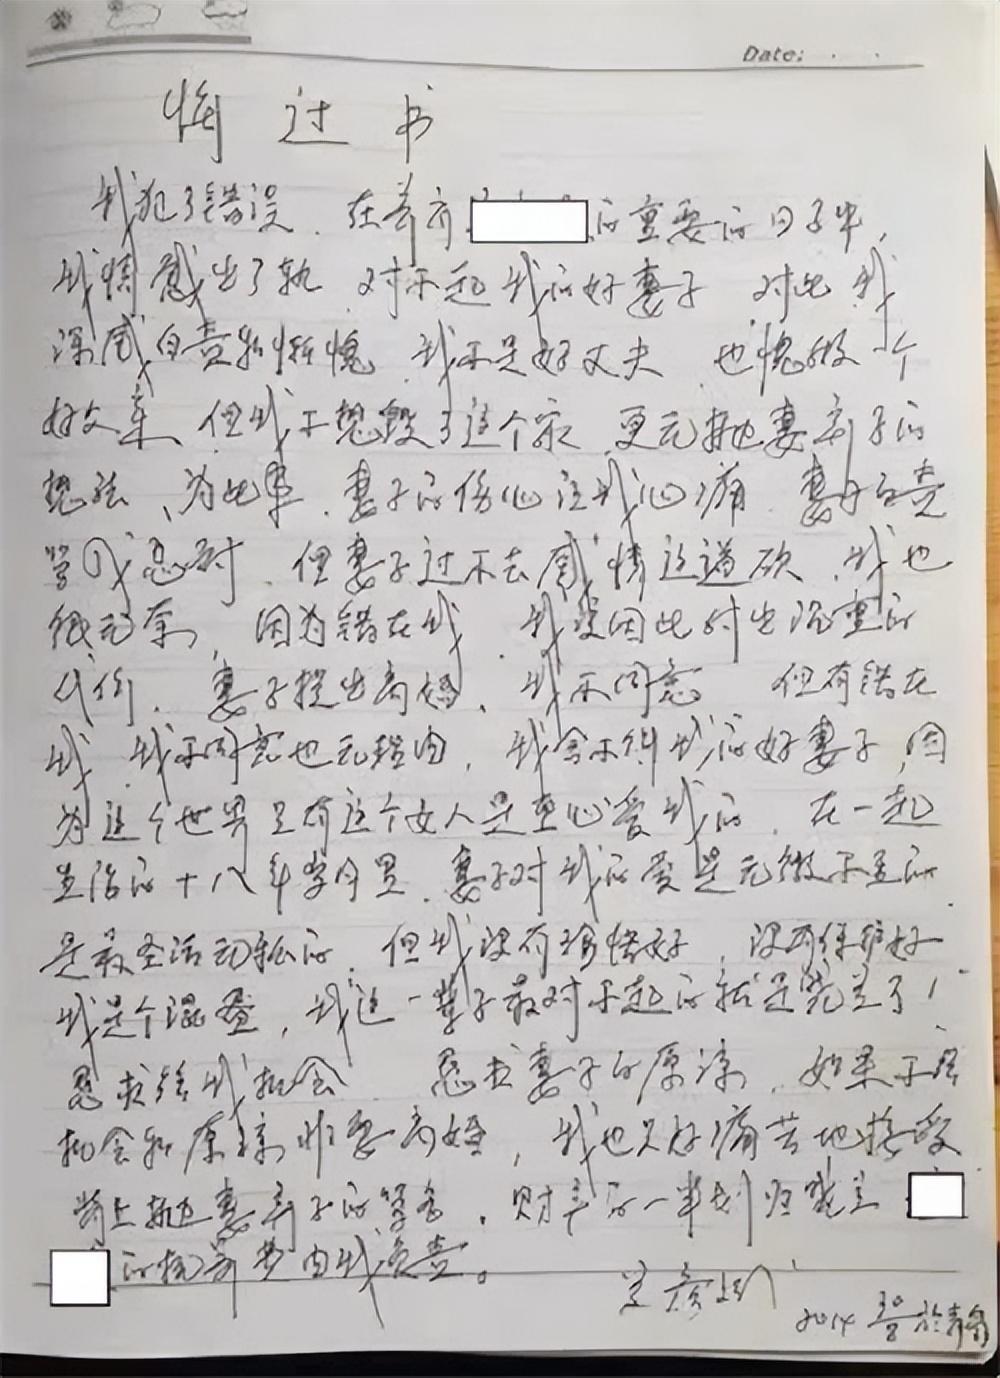 Date:
悔过书
我犯了错误、在养育的重要的日子中,
我情感出了轨 对不起我的好妻子 对此我
深感自责和惭愧 我不是好丈夫 也愧做个
好父亲、但我不想毁了这个家 更无抛妻弃子的
想法、为此事、妻子的伤心让我心痛 妻子自责
当时、但妻子过不去感情这道砍、我也
很无奈, 因为错在我 我要因此付出沉重的
代价、妻子提出离婚、我不同意 但有错在
我 我不同意也无理由, 我舍不得我的好妻子,因
为这个世界只有这个女人是真心爱我的、在一起
生活的十八年岁月里、妻子对我的爱是无微不至的
是最圣洁无私的、但我没有珍惜好、没有保护好
我是个混蛋, 我这一辈子最对不起的就是了!
恳求给我机会 恳求妻子的原谅、如果不给
机会和原谅非要离婚, 我也只好痛苦地接受
背上抛妻弃子的, 财产的一半划归
的抚养费由我负责。
2014 30/8 於青岛